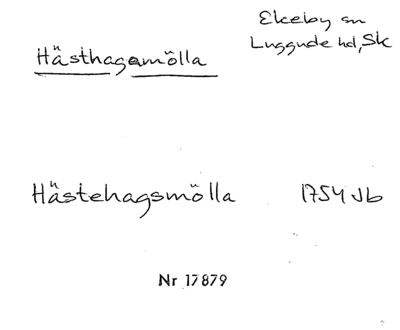 Ekeby sn
Hästhagamölla
Luggude hd, Sk
Hästehagsmölla 1754 Jb
Nr 17879